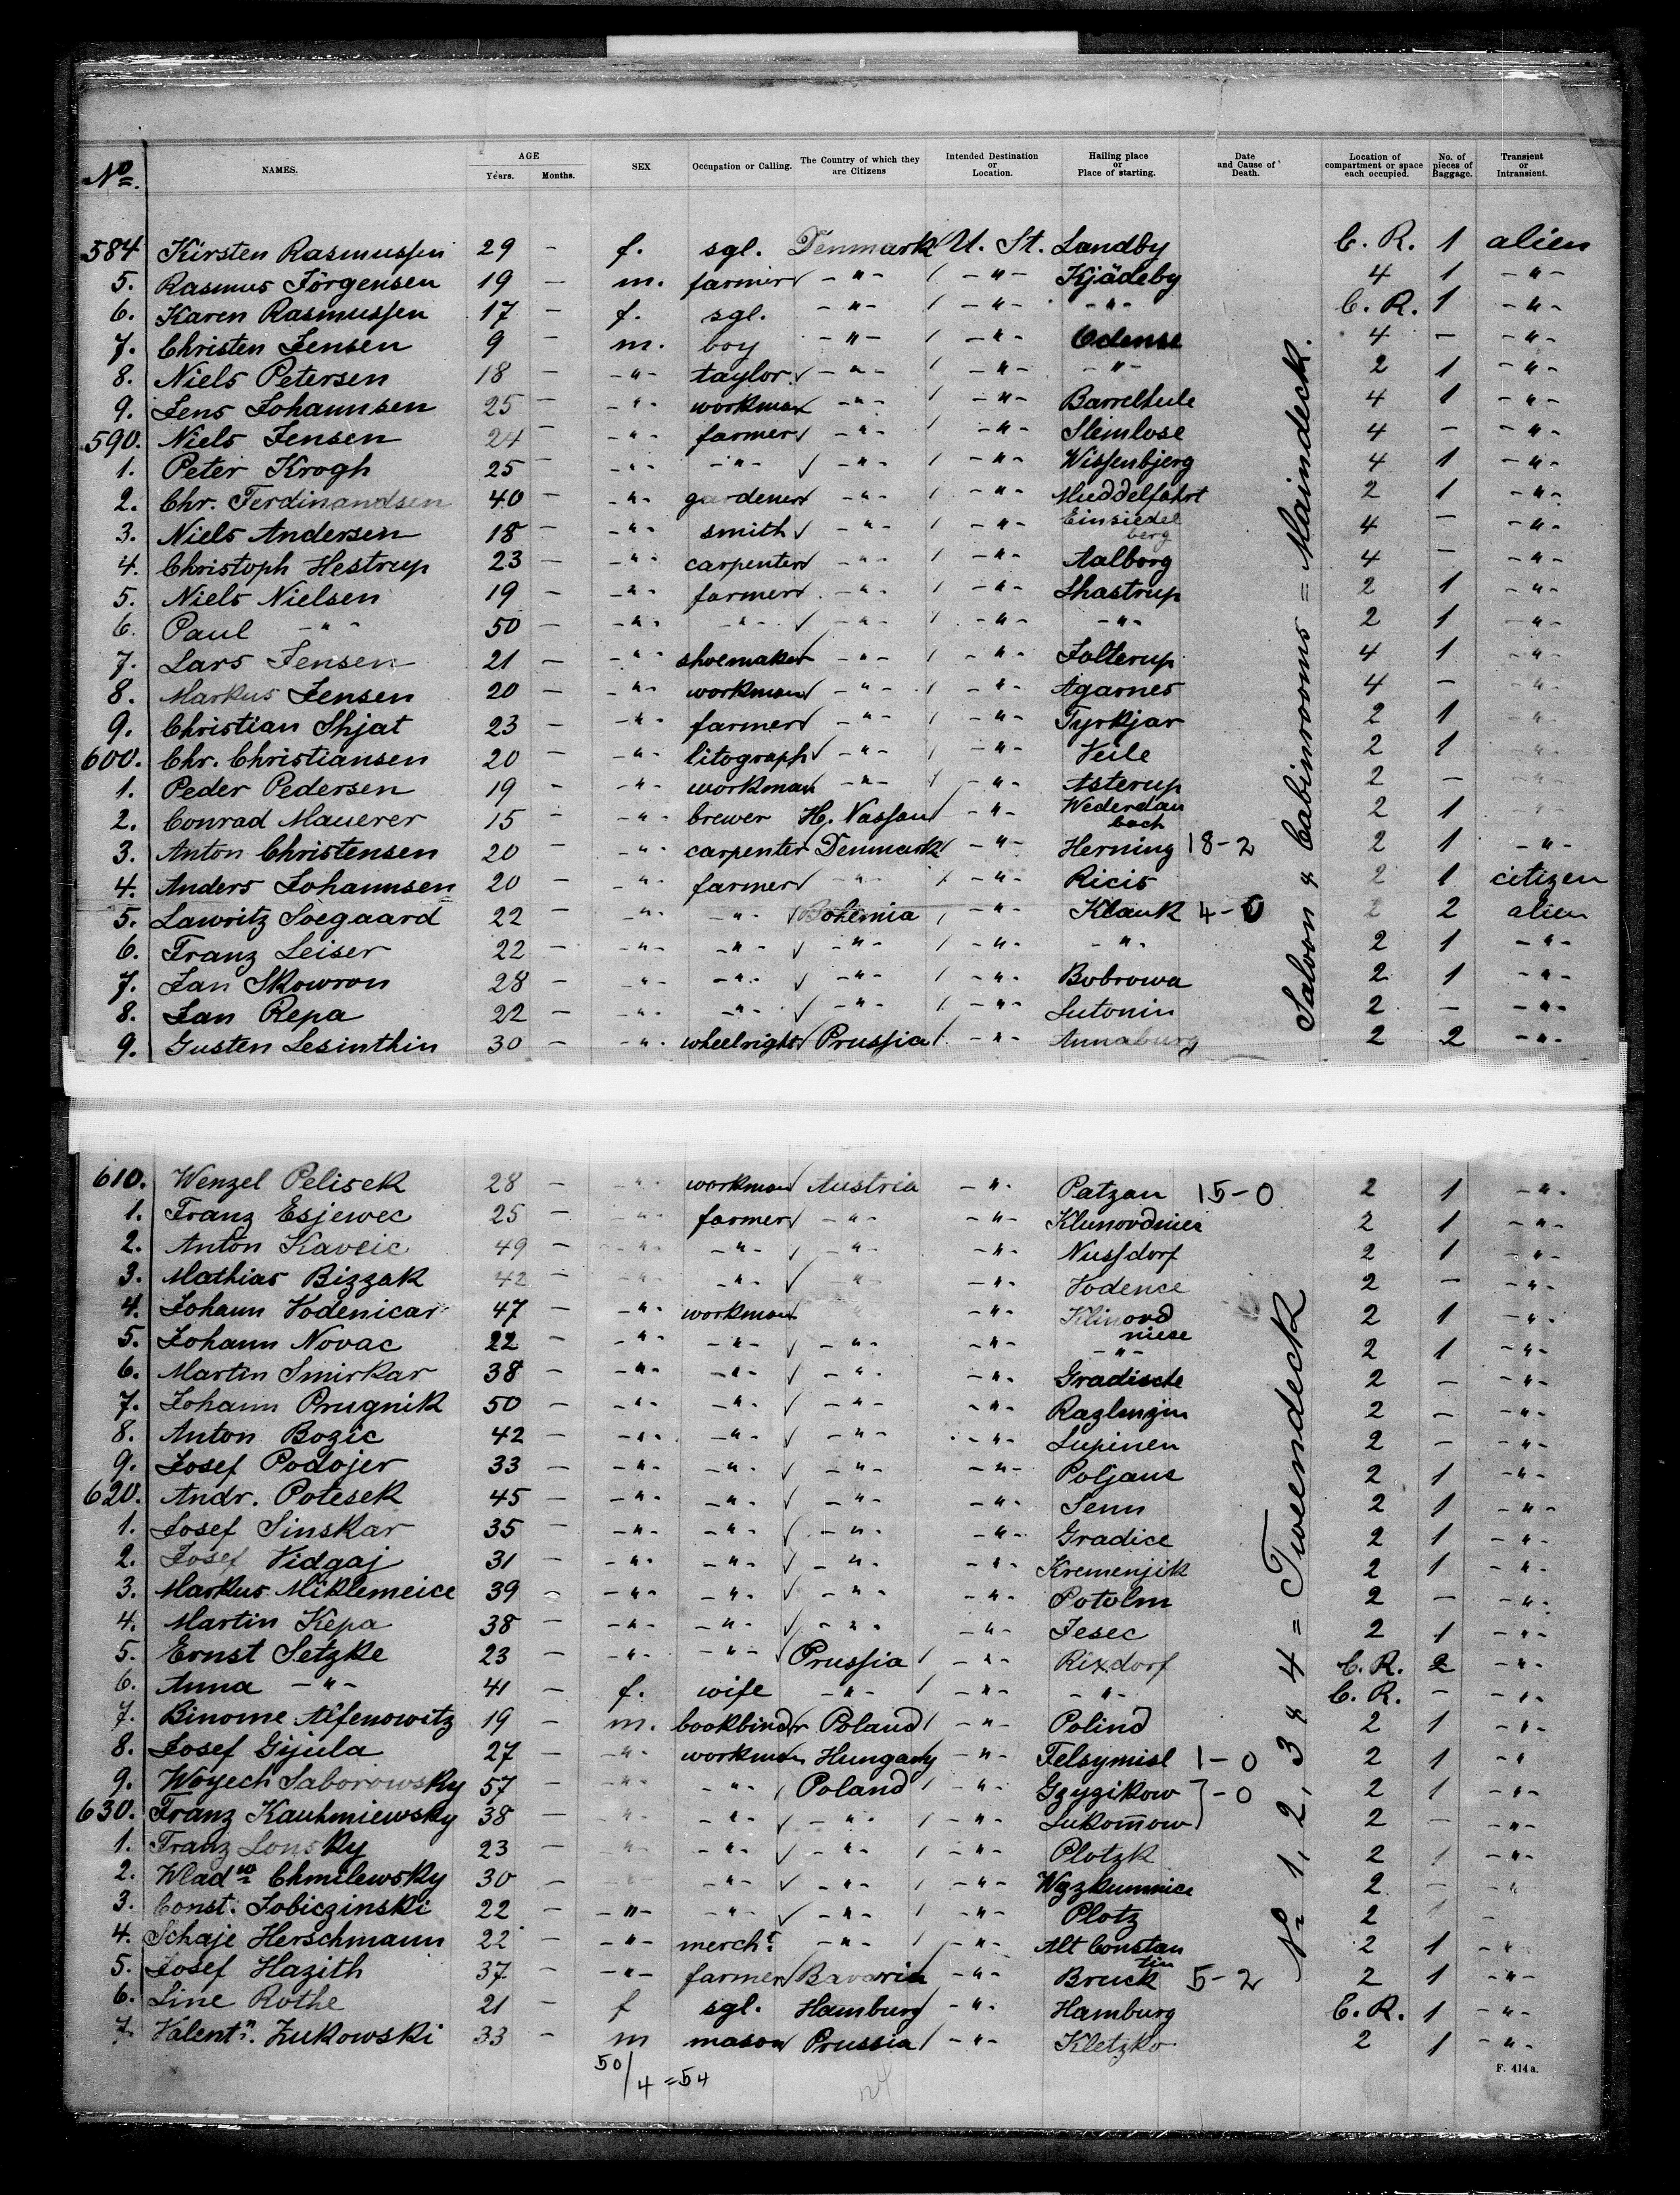 No. NAMES. AGE Years. Months. SEX Occupation or Calling. The Country of which they are Citizens Intended Destination or Location. Hailing place or Place of starting. Date and Cause of Death. Location of compartment or space each occupied. No. of pieces of Baggage. Transient or Intransient.
584 Kirsten Rasmussen 29 - f. sgl. Denmark U. St. Landby C. R. 1 alien
5. Rasmus Jörgensen 19 - m. farmer -"- -"- Kjädeby 4 1 -"-
6. Karen Rasmussen 17 - f. sgl. -"- -"- -"- C. R. 1 -"-
7. Christen Jensen 9 - m. boy -"- -"- Odense 4 - -"-
8. Niels Petersen 18 - -"- taylor -"- -"- -"- 2 1 -"-
9. Jens Johannsen 25 - -"- workman -"- -"- 4 1 -"-
590. Niels Jensen 24 - -"- farmer -"- -"- Slemlose 4 - -"-
1. Peter Krogh 25 - -"- -"- -"- -"- Wissenbjerg 4 1 -"-
2. Chr. Ferdinandsen 40 - -"- gardener -"- -"- Muddelfahrt 2 1 -"-
3. Niels Andersen 18 - -"- smith -"- -"- Einsiedel berg 4 - -"-
4. Christoph Hestrup 23 - -"- carpenter -"- -"- Aalborg 4 - -"-
5. Niels Nielsen 19 - -"- farmer -"- -"- Skastrup 2 1 -"-
6. Paul -"- 50 - -"- -"- -"- -"- -"- 2 1 -"-
7. Lars Jensen 21 - -"- shoemaker -"- -"- Jolterup 4 1 -"-
8. Markus Jensen 20 - -"- workman -"- -"- Agarnes 4 - -"-
9. Christian Skjat 23 - -"- farmer -"- -"- Tyrkjar 2 1 -"-
600. Chr. Christiansen 20 - -"- litograph -"- -"- Veile 2 1 -"-
1. Peder Pedersen 19 - -"- workman -"- -"- Asterup 2 - -"-
2. Conrad Mauerer 15 - -"- brewer H. Nassau -"- Wederdau bach 2 1 -"-
3. Anton Christensen 20 - -"- carpenter Denmark -"- Herning 18-2 2 1 -"-
4. Anders Johannsen 20 - -"- farmer -"- -"- Ricis 2 1 citizen
5. Lawritz Soegaard 22 - -"- -"- Bohemia -"- Klauk 4-0 2 2 alien
6. Franz Leiser 22 - -"- -"- -"- -"- -"- 2 1 -"-
7. Jan Skowron 28 - -"- -"- -"- -"- Bobrowa 2 1 -"-
8. Jan Repa 22 - -"- -"- -"- -"- Lutonin 2 - -"-
9. Gusten Lesinthin 30 - -"- wheelright Prussia -"- Annaburg 2 2 -"-
Saloon & Cabinrooms = Maindeck.
610. Wenzel Pelisek 28 - -"- workman Austria -"- Patzau 15-0 2 1 -"-
1. Franz Esjewec 25 - -"- farmer -"- -"- 2 1 -"-
2. Anton Kavcic 49 - -"- -"- -"- -"- Nussdorf 2 1 -"-
3. Mathias Bizzak 42 - -"- -"- -"- -"- Vodence 2 - -"-
4. Johann Vodenicar 47 - -"- workman -"- Klinovd niese 2 1 -"-
5. Johann Novac 22 - -"- -"- -"- -"- -"- 2 1 -"-
6. Martin Smirkar 38 - -"- -"- -"- -"- Gradische 2 - -"-
7. Johann Prugnik 50 - -"- -"- -"- -"- 2 - -"-
8. Anton Bozic 42 - -"- -"- -"- -"- Lupinen 2 - -"-
9. Josef Podojer 33 - -"- -"- -"- -"- Poljans 2 1 -"-
620. Andr. Potesek 45 - -"- -"- -"- -"- Senn 2 1 -"-
1. Josef Sinskar 35 - -"- -"- -"- -"- Gradice 2 1 -"-
2. Josef Vidgaj 31 - -"- -"- -"- -"- Kremenjik 2 1 -"-
3. Markus Miklemeice 39 - -"- -"- -"- -"- Potolm 2 - -"-
4. Martin Kepa 38 - -"- -"- -"- -"- Jesec 2 1 -"-
5. Ernst Setzke 23 - -"- -"- Prussia -"- Rixdorf C. R. 2 -"-
6. Anna -"- 41 - f. wife -"- -"- -"- C. R. - -"-
7. Binome Alfenowitz 19 - m. bookbinder Poland -"- Polind 2 1 -"-
8. Josef Gijula 27 - -"- workman Hungary -"- Felsymisl 1-0 2 1 -"-
9. Woyech Saborowsky 57 - -"- -"- Poland -"- Gzygikow }-0 2 1 -"-
630. Franz Kauhmiewsky 38 - -"- -"- -"- -"- Lukomow 2 - -"-
1. Franz Lonsky 23 - -"- -"- -"- -"- Plotzk 2 1 -"-
2. Wladw Chmilewsky 30 - -"- -"- -"- -"- 2 - -"-
3. Const. Jobiczinski 22 - -"- -"- -"- -"- Plotz 2 1 -
4. Schaje Herschmann 22 - -"- mercht -"- -"- Alt Constan tin 2 1 -"-
5. Josef Hazith 37 - -"- farmer Bavaria -"- Bruck 5-2 2 1 -"-
6. Line Rothe 21 - f sgl. Hamburg -"- Hamburg C. R. 1 -"-
7. Valentn. Zukowski 33 - m mason Prussia -"- Kletzko 2 1 -"-
No 1, 2, 3 & 4 = Tweendeck
50/4 = 54
F. 414 a.